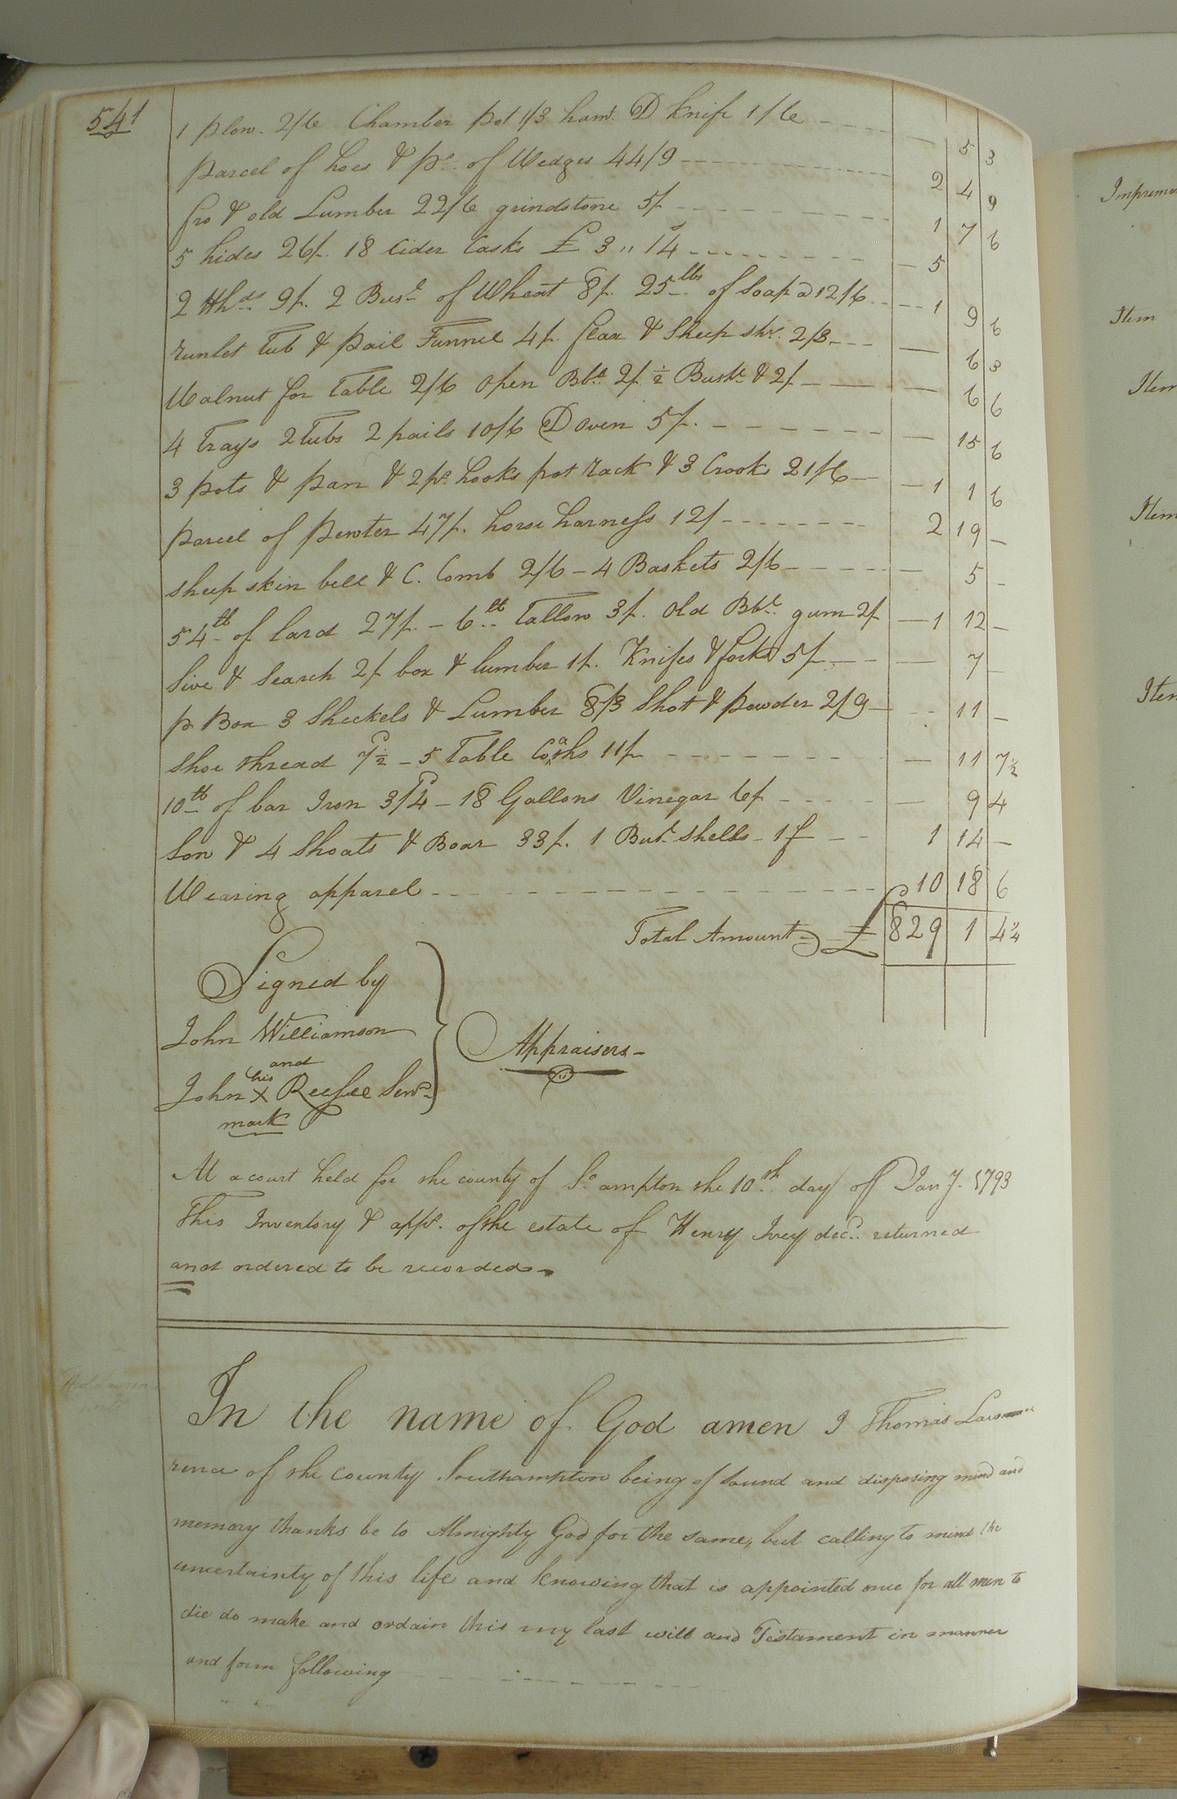 541
1 plow. 2/6 Chamber pot 1/3 haw. D knife 1/6 - - - - — 5 3
parcel of hoes & ps. of Wedges 44/9 - - - - 2 4 9
fro & old Lumber 22/6 grindstone 5/. - - - - 1 7 6
5 hides 26/. 18 Cider Casks £ 3 " 14 - - - - — 5
2 Hhds 9/. 2 Busl of Wheat 8/. 25 lbs of Soap a 12/6 - - — 1 9 6
runlet Tub & pail Funnel 4/. flax & Sheep shr. 2/3 - - - — 6 3
Walnut for Table 2/6 open Bbl 2/. ½ Bushl & 2/ - — — 6 6
4 Trays 2 Tubs 2 pails 10/6 D Oven 5/. - - - - — 15 6
3 pots & pan & 2 pr. hooks pot rack & 3 Crooks 21/6 — — 1 1 6
parcel of pewter 47/. horse harness 12/ - - - - 2 19 —
sheep skin bell & C. Comb 2/6 - 4 Baskets 2/6 - - - — 5 -
54 lb of lard 27/. - 6 lb Tallow 3/. old Bbl. gum 2/ — 1 12 —
Sive & Search 2/ box & lumber 1/. Knifes & forks 5/ - - — 7 —
p Box 3 Sheckels & Lumber 8/3 Shot & powder 2/9 — - 11 —
Shoe thread 7½ - 5 Table Coaths 11/. - - - - — 11 7½
10 lb of bar Iron 3/4 - 18 Gallons Vinegar 6/ - - - — 9 4
Sow & 4 Shoats & Boar 33/. 1 Busl Shells - 1/ - - 1 14 —
Wearing apparel - - - - 10 18 6
Total Amount £ 829 1 4¾
Signed by
John Williamson
and
his
John X Reesee Senr.
mark
Appraisers -
At a court held for the county of So ampton the 10th day off Jany. 1793
This Inventory & appt. of the estate of Henry Ivey decd. returned
and ordered to be recorded -
In the name of God amen I Thomas
rence of the county Southampton being of Sound and disposing mind and
memory thanks be to Almighty God for the same, but calling to mind the
uncertainty of this life and knowing that is appointed once for all men to
die do make and ordain this my last will and Testament in manner
and form following - - - -
Item
Item
Item